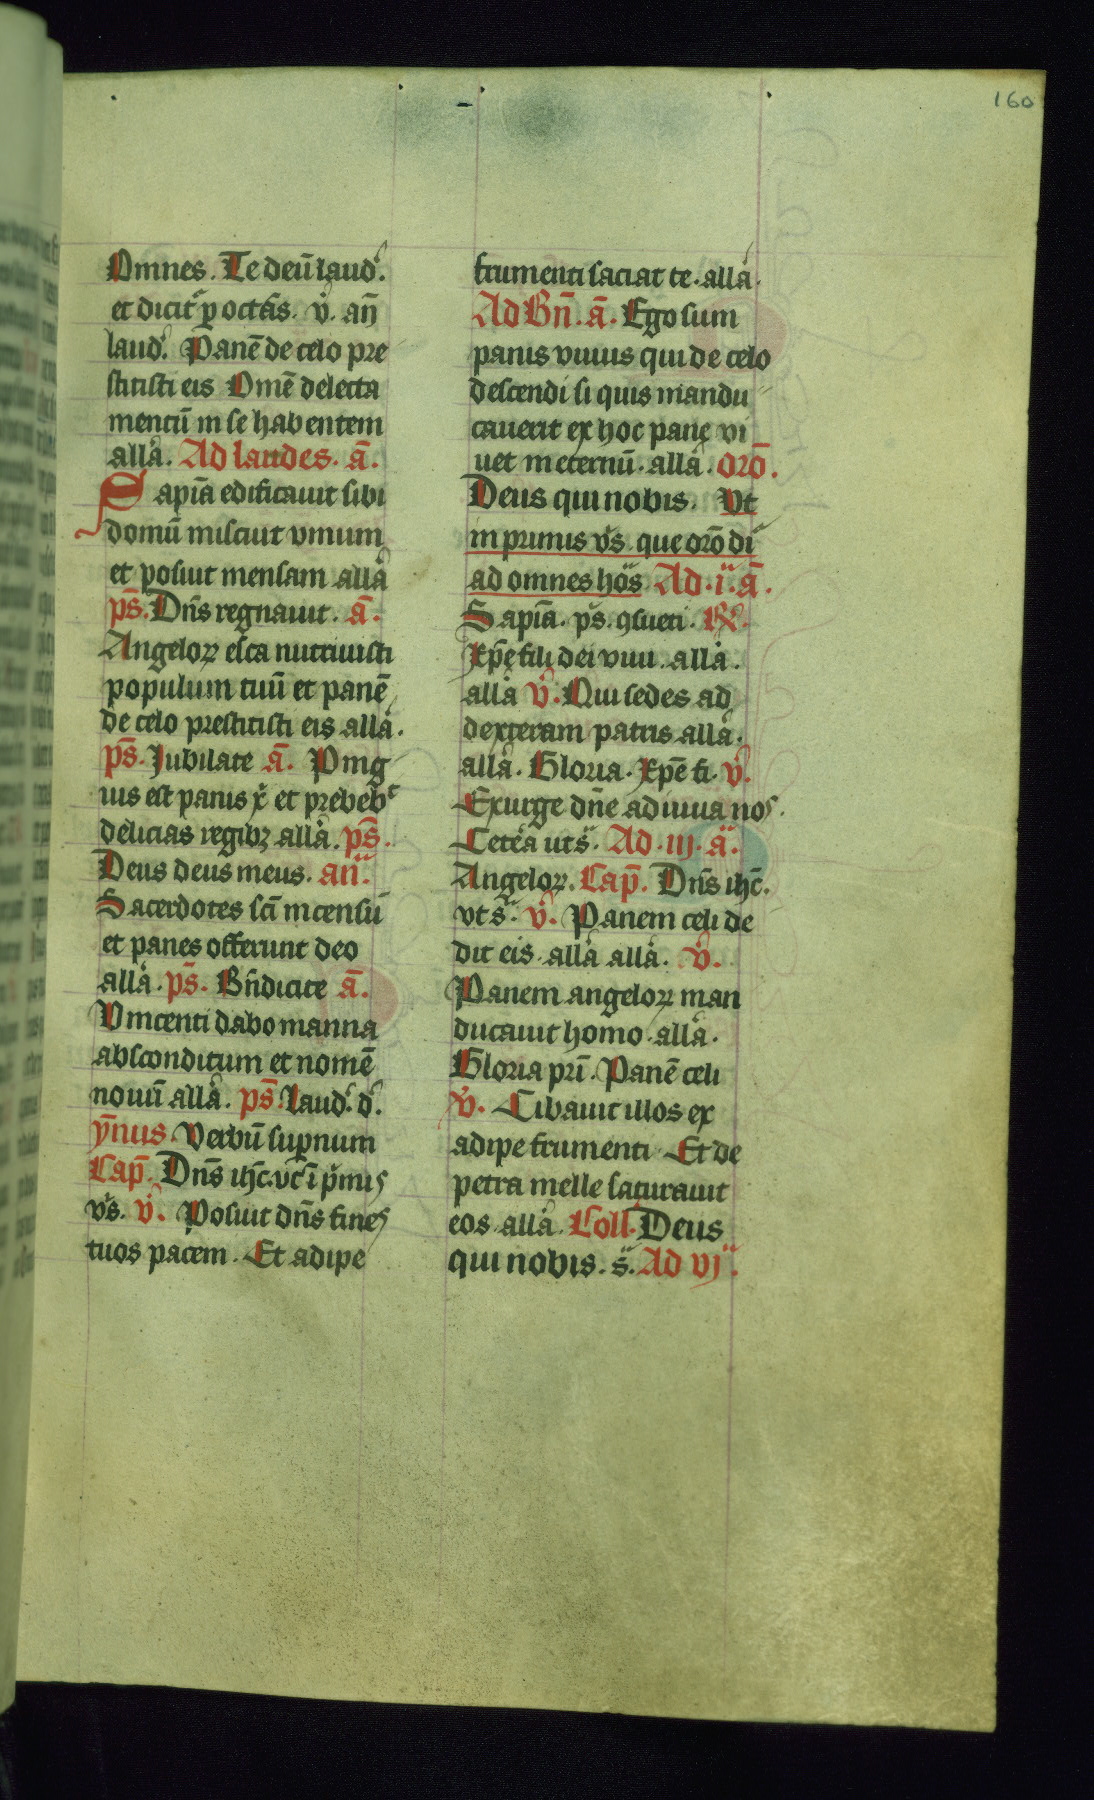 160
Omnes. Te deū laud͛.
et dicit͛ p octās. v̊. an̄
laud͛. Panē de celo pre
stitisti eis Omē delecta
mentū in se habentem
alla͛. Ad laudes. ā.
Sapīa edificauit sibi
domū miscuit vinum
et posuit mensam alla͛
ps̄. Dn̄s regnauit. ā.
Angeloꝝ esca nutriuisti
populum tuū et panē
de celo prestitisti eis alla͛.
ps̄. Jubilate ā. Ping
uis est panis xp̄i et prebebͭ
delicias regibꝫ alla͛. ps̄.
Deus deus meus. an̄.
Sacerdotes sc̄i incensū
et panes offerunt deo
alla͛. ps̄. Bn̄dicite ā.
Vincenti dabo manna
absconditum et nomē
nouū alla͛. ps̄. Laud͛. d͛.
ym̄nus Verbū suꝑnum
Cap̄. Dn̄s ih̄c. vt ī p̍mis
v͛s. v̊. Posuit dn̄s fines
tuos pacem. Et adipe
frumenti saciat te. alla͛.
Ad Bn̄. ā. Ego sum
panis viuus qui de celo
descendi si quis mandu
cauerit ex hoc pane vi
uet in eternū. alla͛. orō.
Deus qui nobis. Vt
in primis v͛s. que orō di͛
ad omnes ho͛s Ad .i. ā.
Sapīa. ps̄. ꝯsueti. R̷.
Xp̄e fili dei viui. alla͛.
alla͛ v̊. Qui sedes ad
dexteram patris alla͛.
alla͛. Gloria. Xp̄e fi. v̊.
Exurge dn̄e adiuua nos.
Cetēa ut s͛. Ad .iij. ā.
Angeloꝝ. Cap̄. Dn̄s ih̄c.
vt s͛. v̊. Panem celi de
dit eis. alla͛ alla͛. v̊.
Panem angeloꝝ man
ducauit homo. alla͛.
Gloria pr̄i. Panē celi
v̊. Cibauit illos ex
adipe frumenti Et de
petra melle saturauit
eos. alla͛. Coll. Deus
qui nobis. s͛. Ad vj͛.